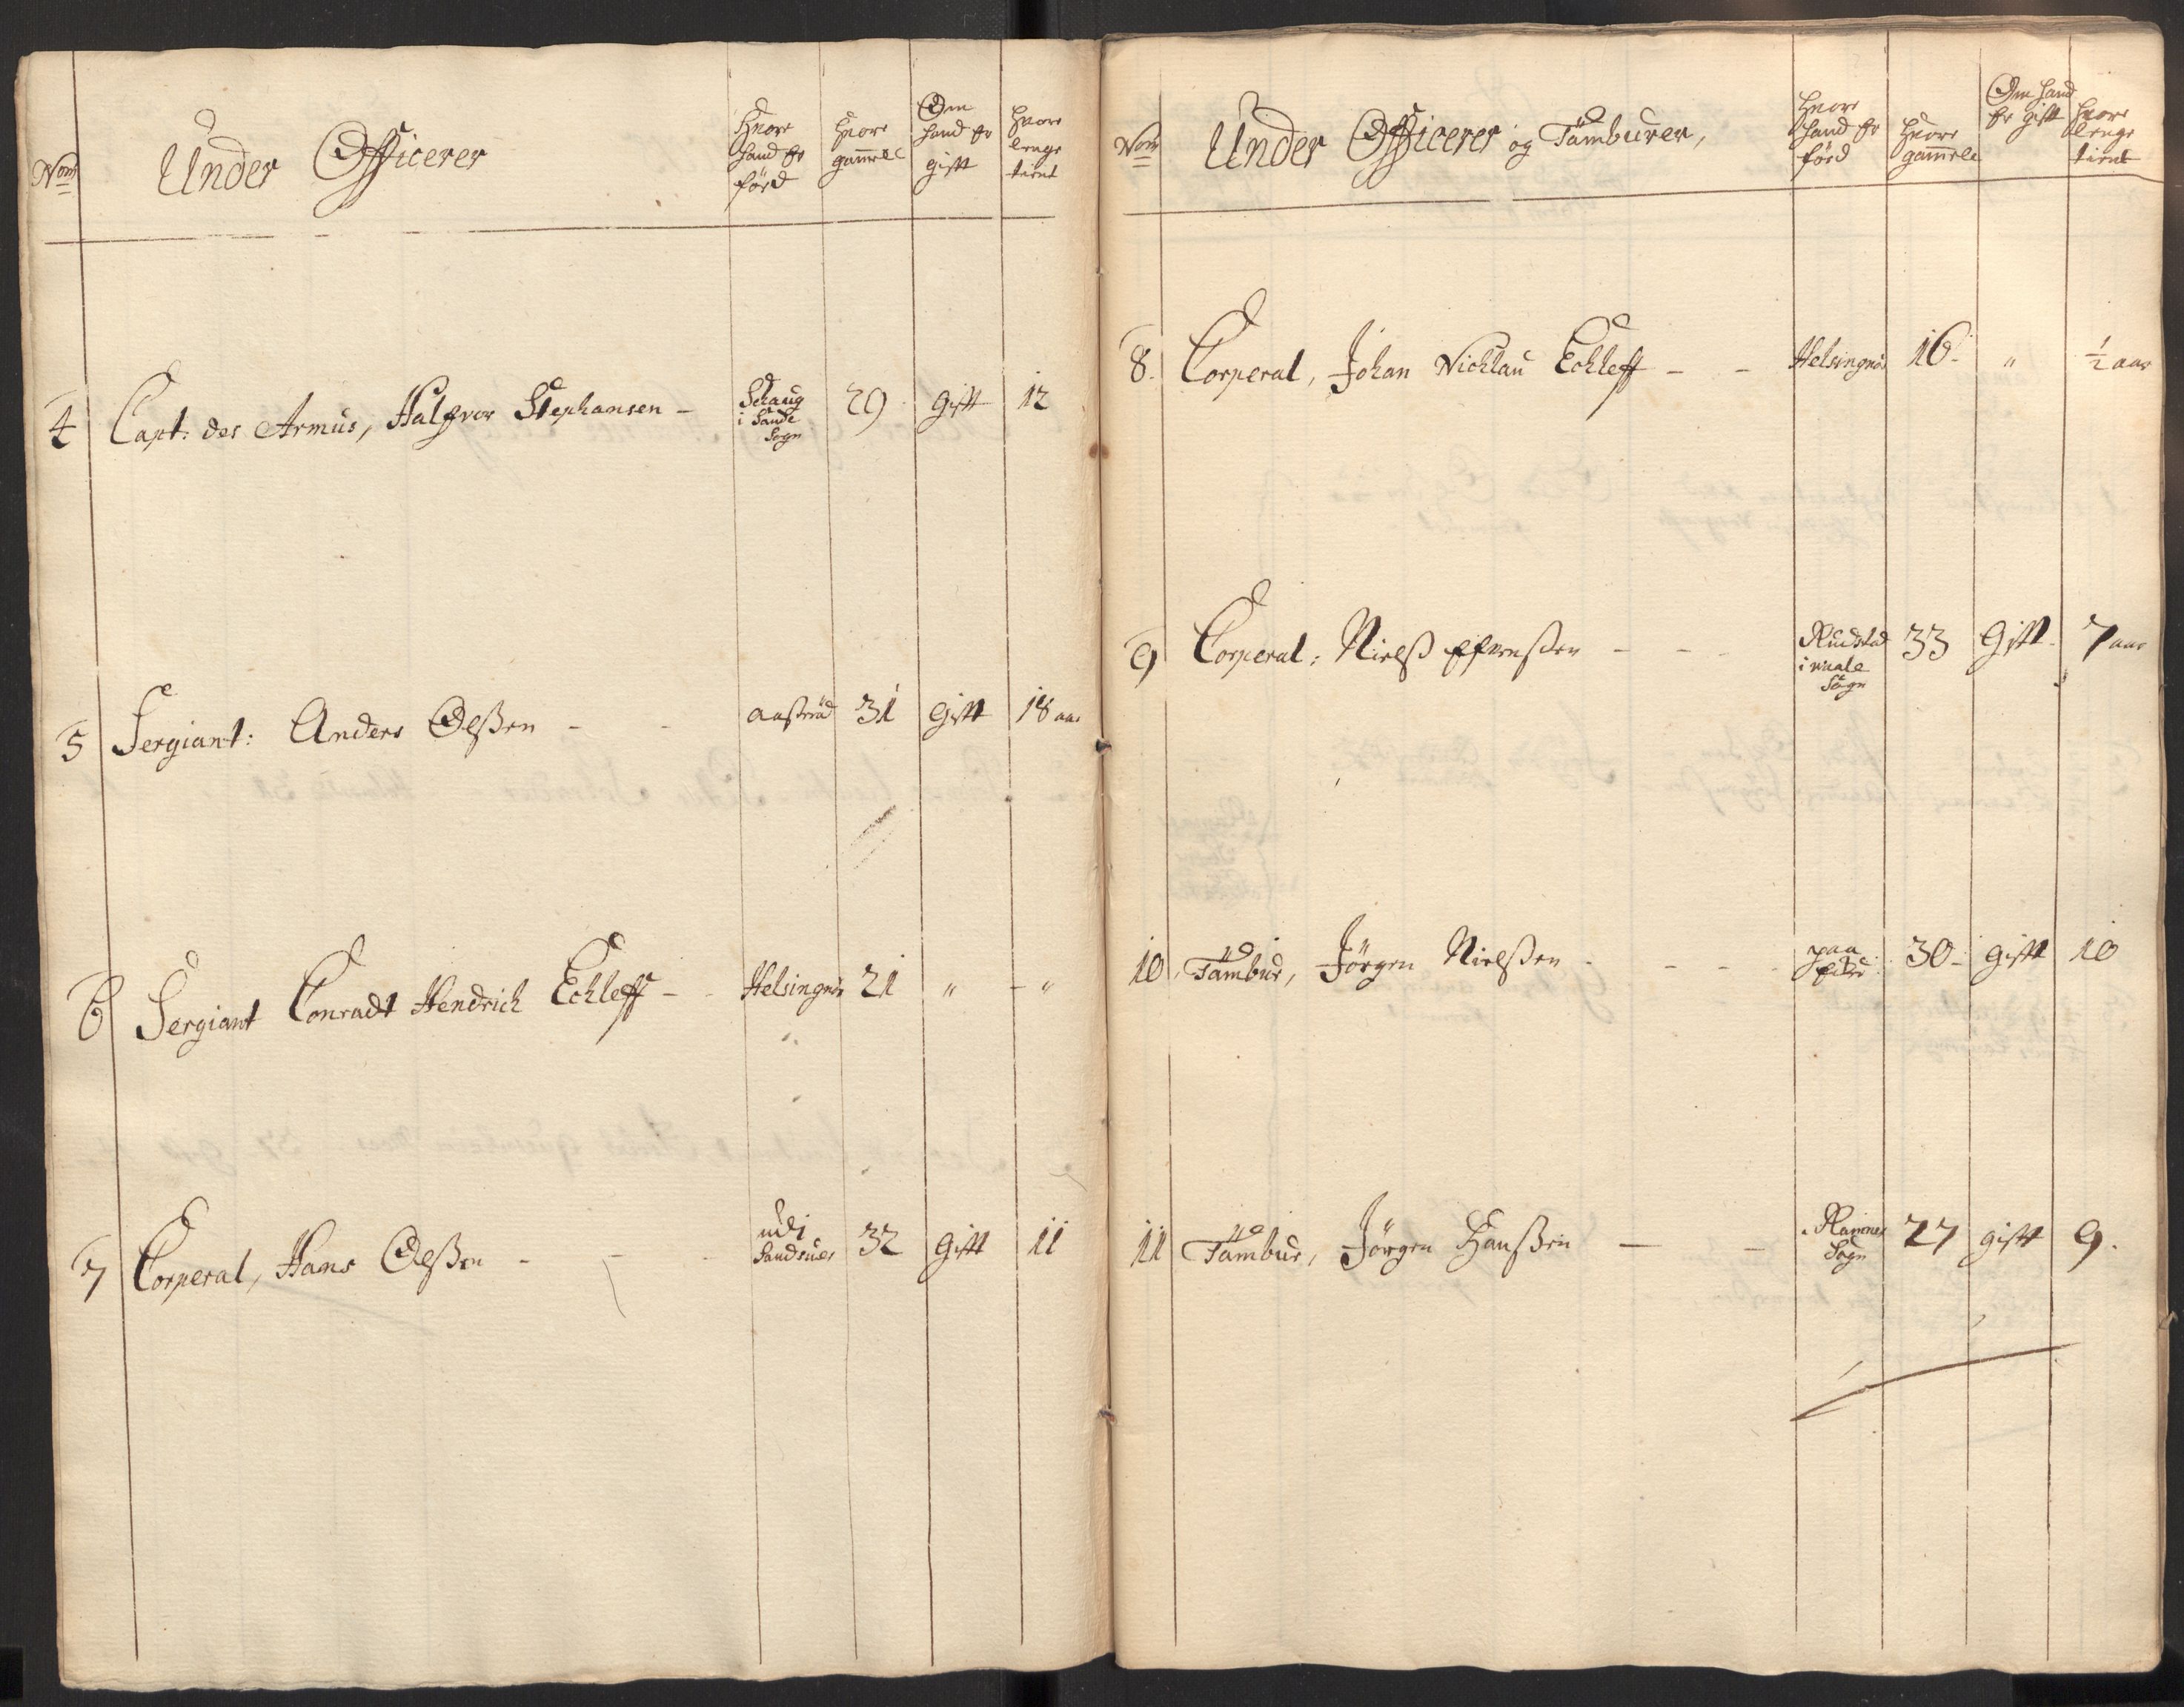 Nom
Under Officerer
Hvore hand er förd
Hvore gammele
Om hand er gift
Hvore lenge tient
4 Capt: des Armus, Halfvor Stephansen - Schaug i Sande Sogn 29 Gift 12
5 Sergiant: Anders Olßen - - 31 Gift 18 aar
6 Sergiant Conradt Hendrich Echleff - - Helsingnör 21 " - "
7 Corperal, Hans Olßen - - - udj Sandsuer 32 Gift 11
Nom
Under Officerer og Tamburer,
Hvore hand er förd
Hvore gammele
Om hand er gift
Hvore lenge tient
8. Corperal, Johan Nichlau Echleff - - Helsingnör 16. " ½ aar
9 Corperal: Nielß - - - Rudstad i Sogn 33 Gift 7 aar
10. Tambur, Jörgen Nielßen - - - - paa 30 - gift 10
11 Tambur, Jörgen Hanßen - - Ramnes Sogn 27 gift 9.